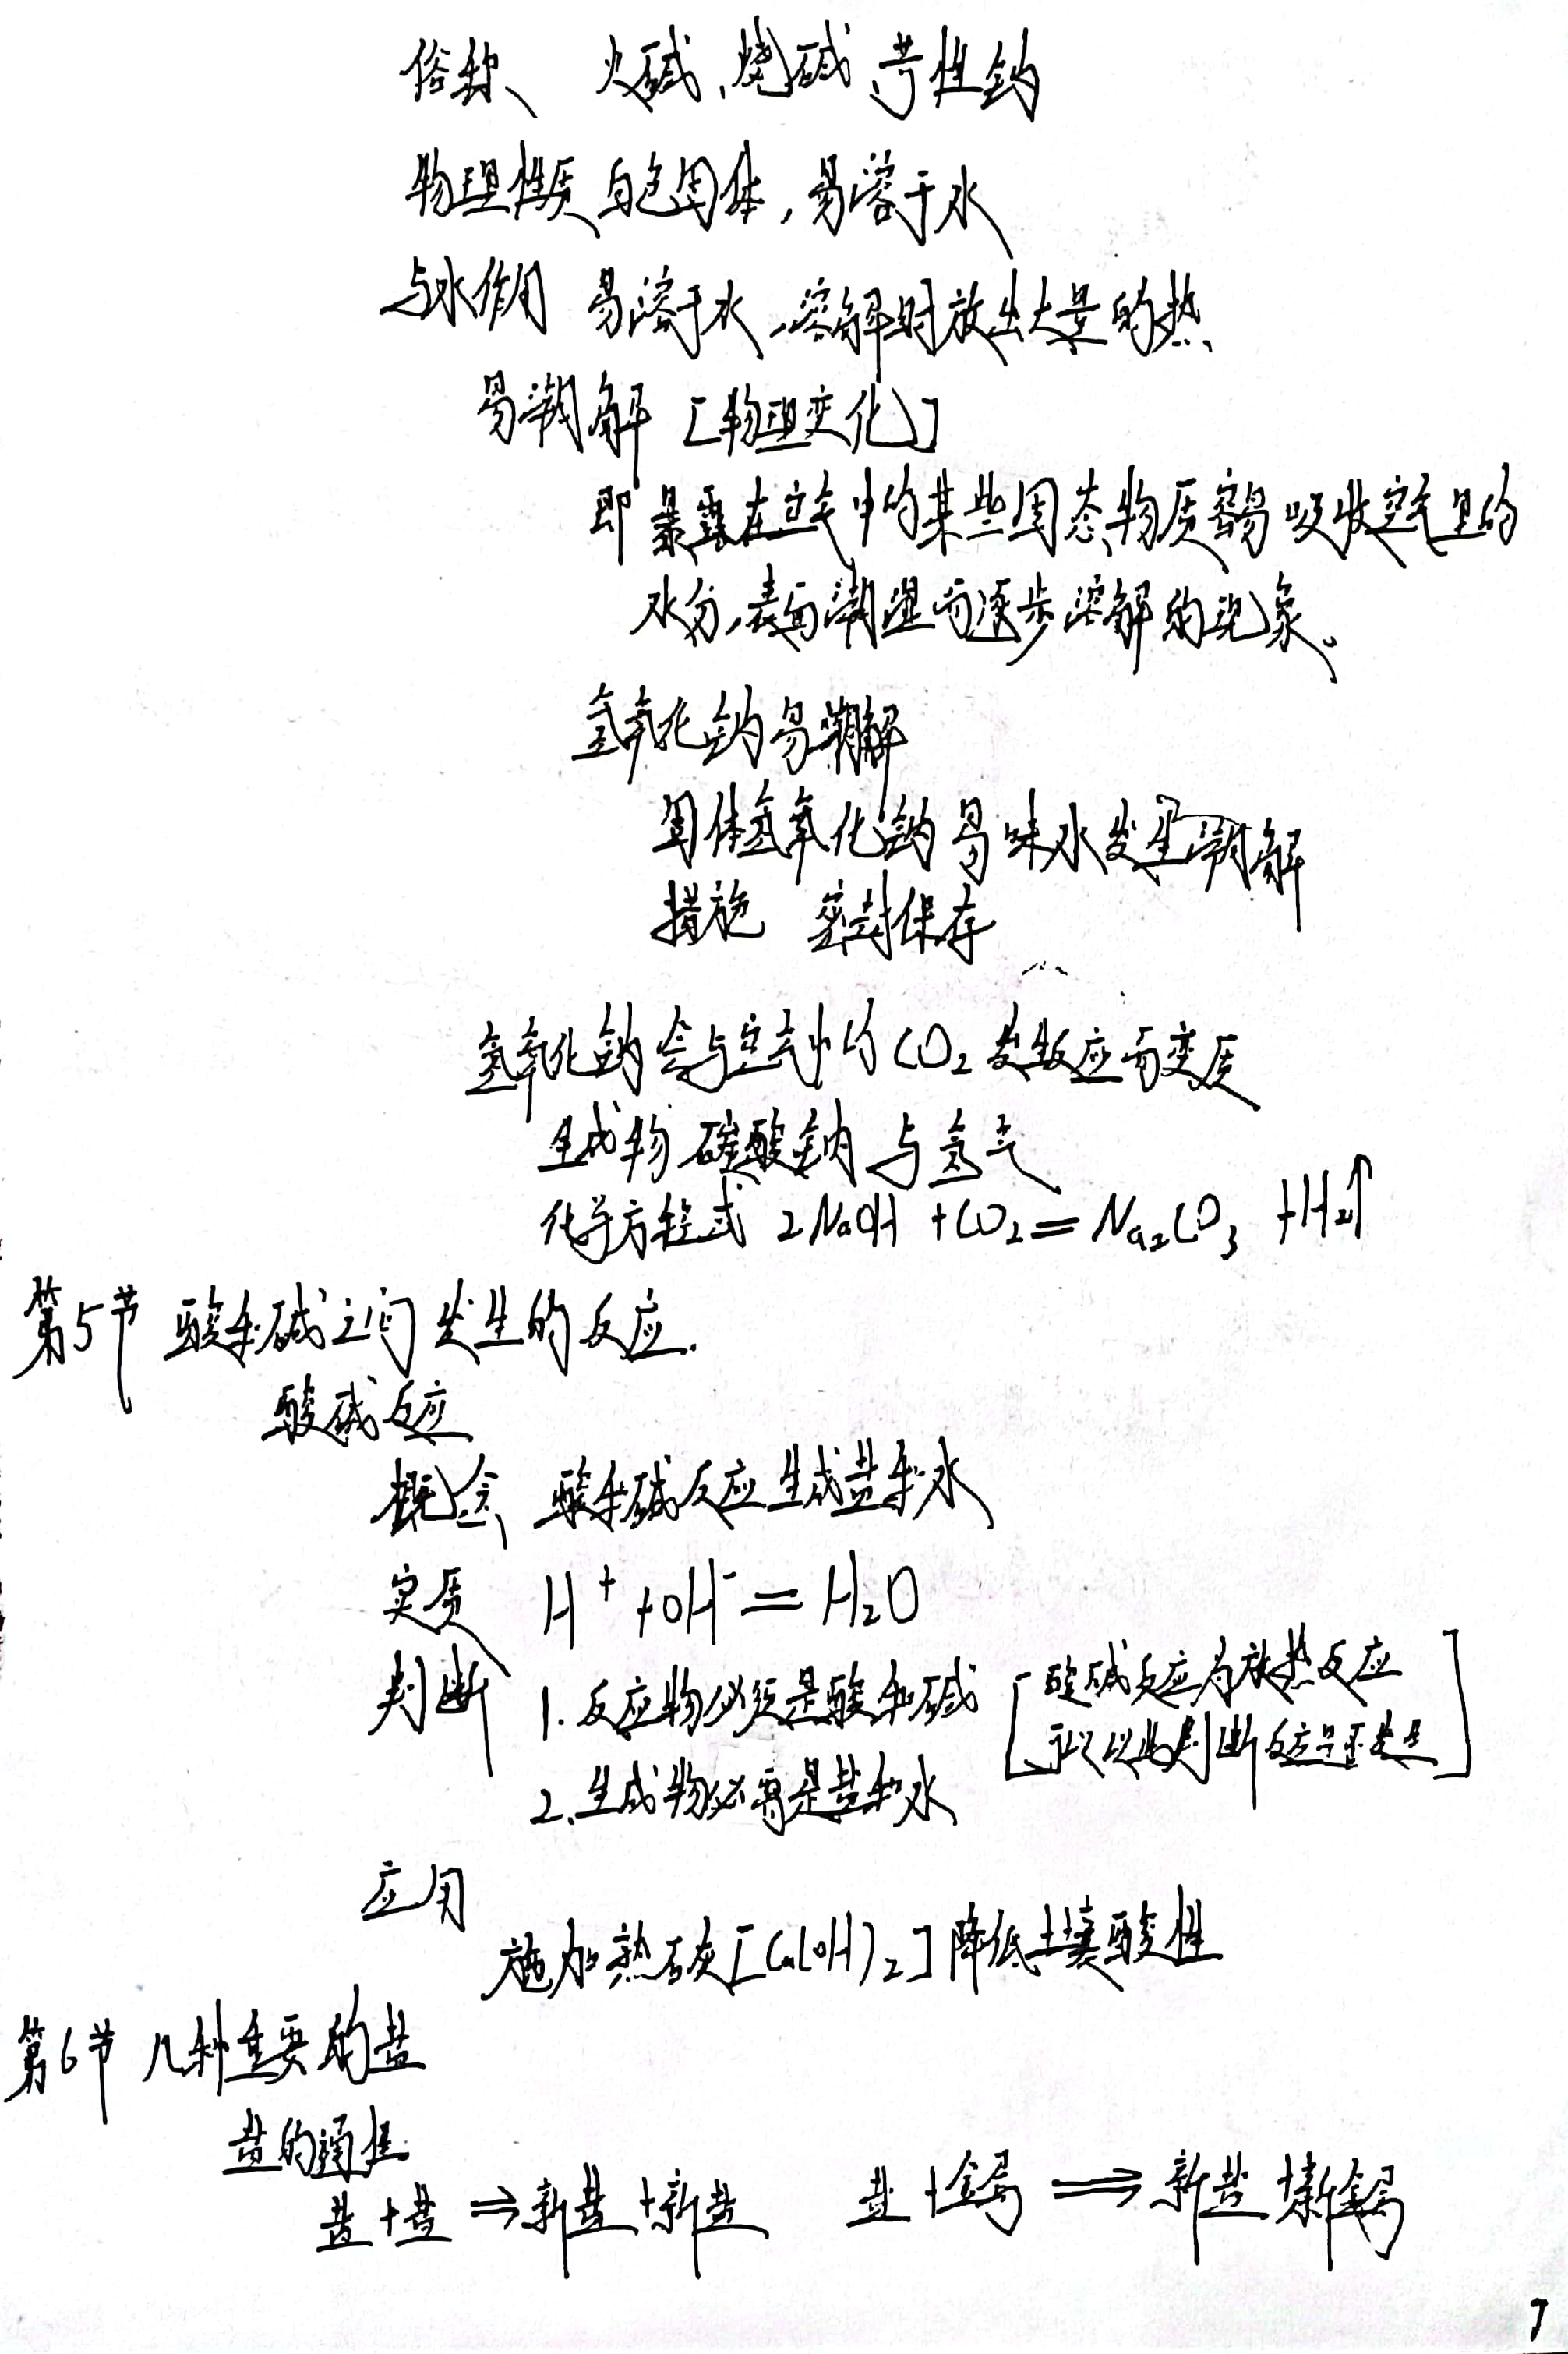 俗称、 火碱、烧碱、苛性钠
物理性质 白色固体，易溶于水
与水作用 易溶于水，溶解时放出大量的热
易潮解 [物理变化]
即暴露在空气中的某些固态物质容易吸收空气里的
水分，表面潮湿而逐步溶解的现象。
氢氧化钠易潮解
固体氢氧化钠易味水发生潮解
措施 密封保存
氢氧化钠会与空气中的CO₂发生反应而变质
生成物 碳酸钠与氢气
化学方程式 2NaOH + CO₂ = Na₂CO₃ + H₂↑
第5节 酸和碱之间发生的反应.
酸碱反应
概念 酸和碱反应生成盐和水
实质 H⁺ + OH⁻ = H₂O
判断 1. 反应物必须是酸和碱 [酸碱反应为放热反应
可以以此判断反应是否发生]
2. 生成物必需是盐和水
应用
施加熟石灰[Ca(OH)₂]降低土壤酸性
第6节 几种重要的盐
盐的通性
盐+盐 ⇒ 新盐+新盐 盐+金属 ⇒ 新盐+新金属
7